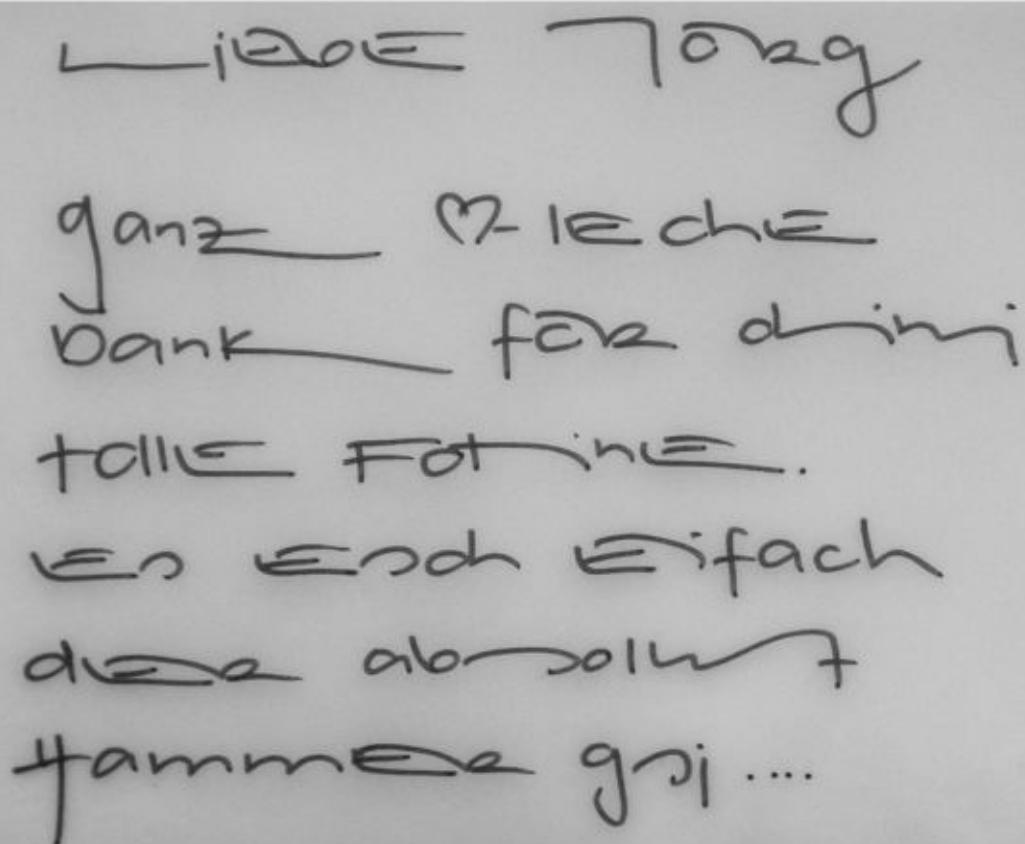 Liebe Jörg
ganz ♡-leche
Dank för dini
tolle Fotine.
Es esch eifach
der absolut
Hammer gsi ....